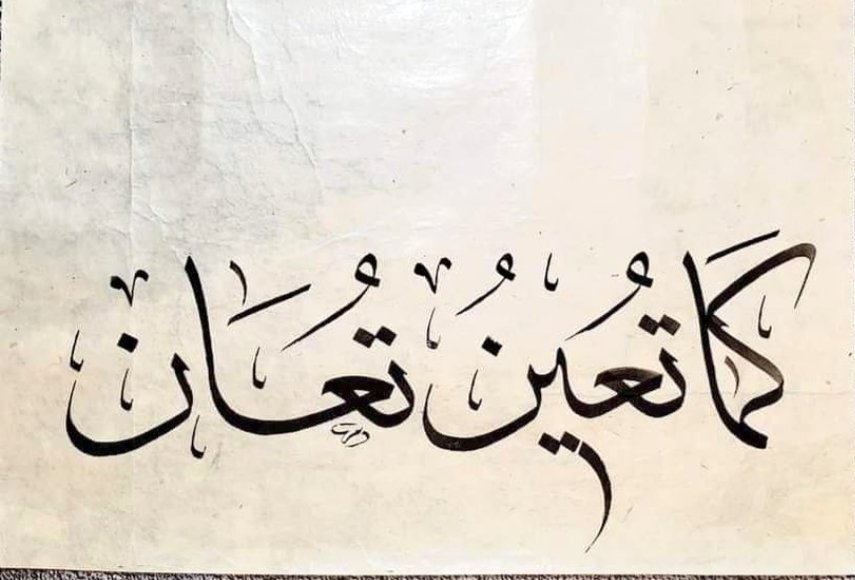 كَمَا تُعِينُ تُعَان